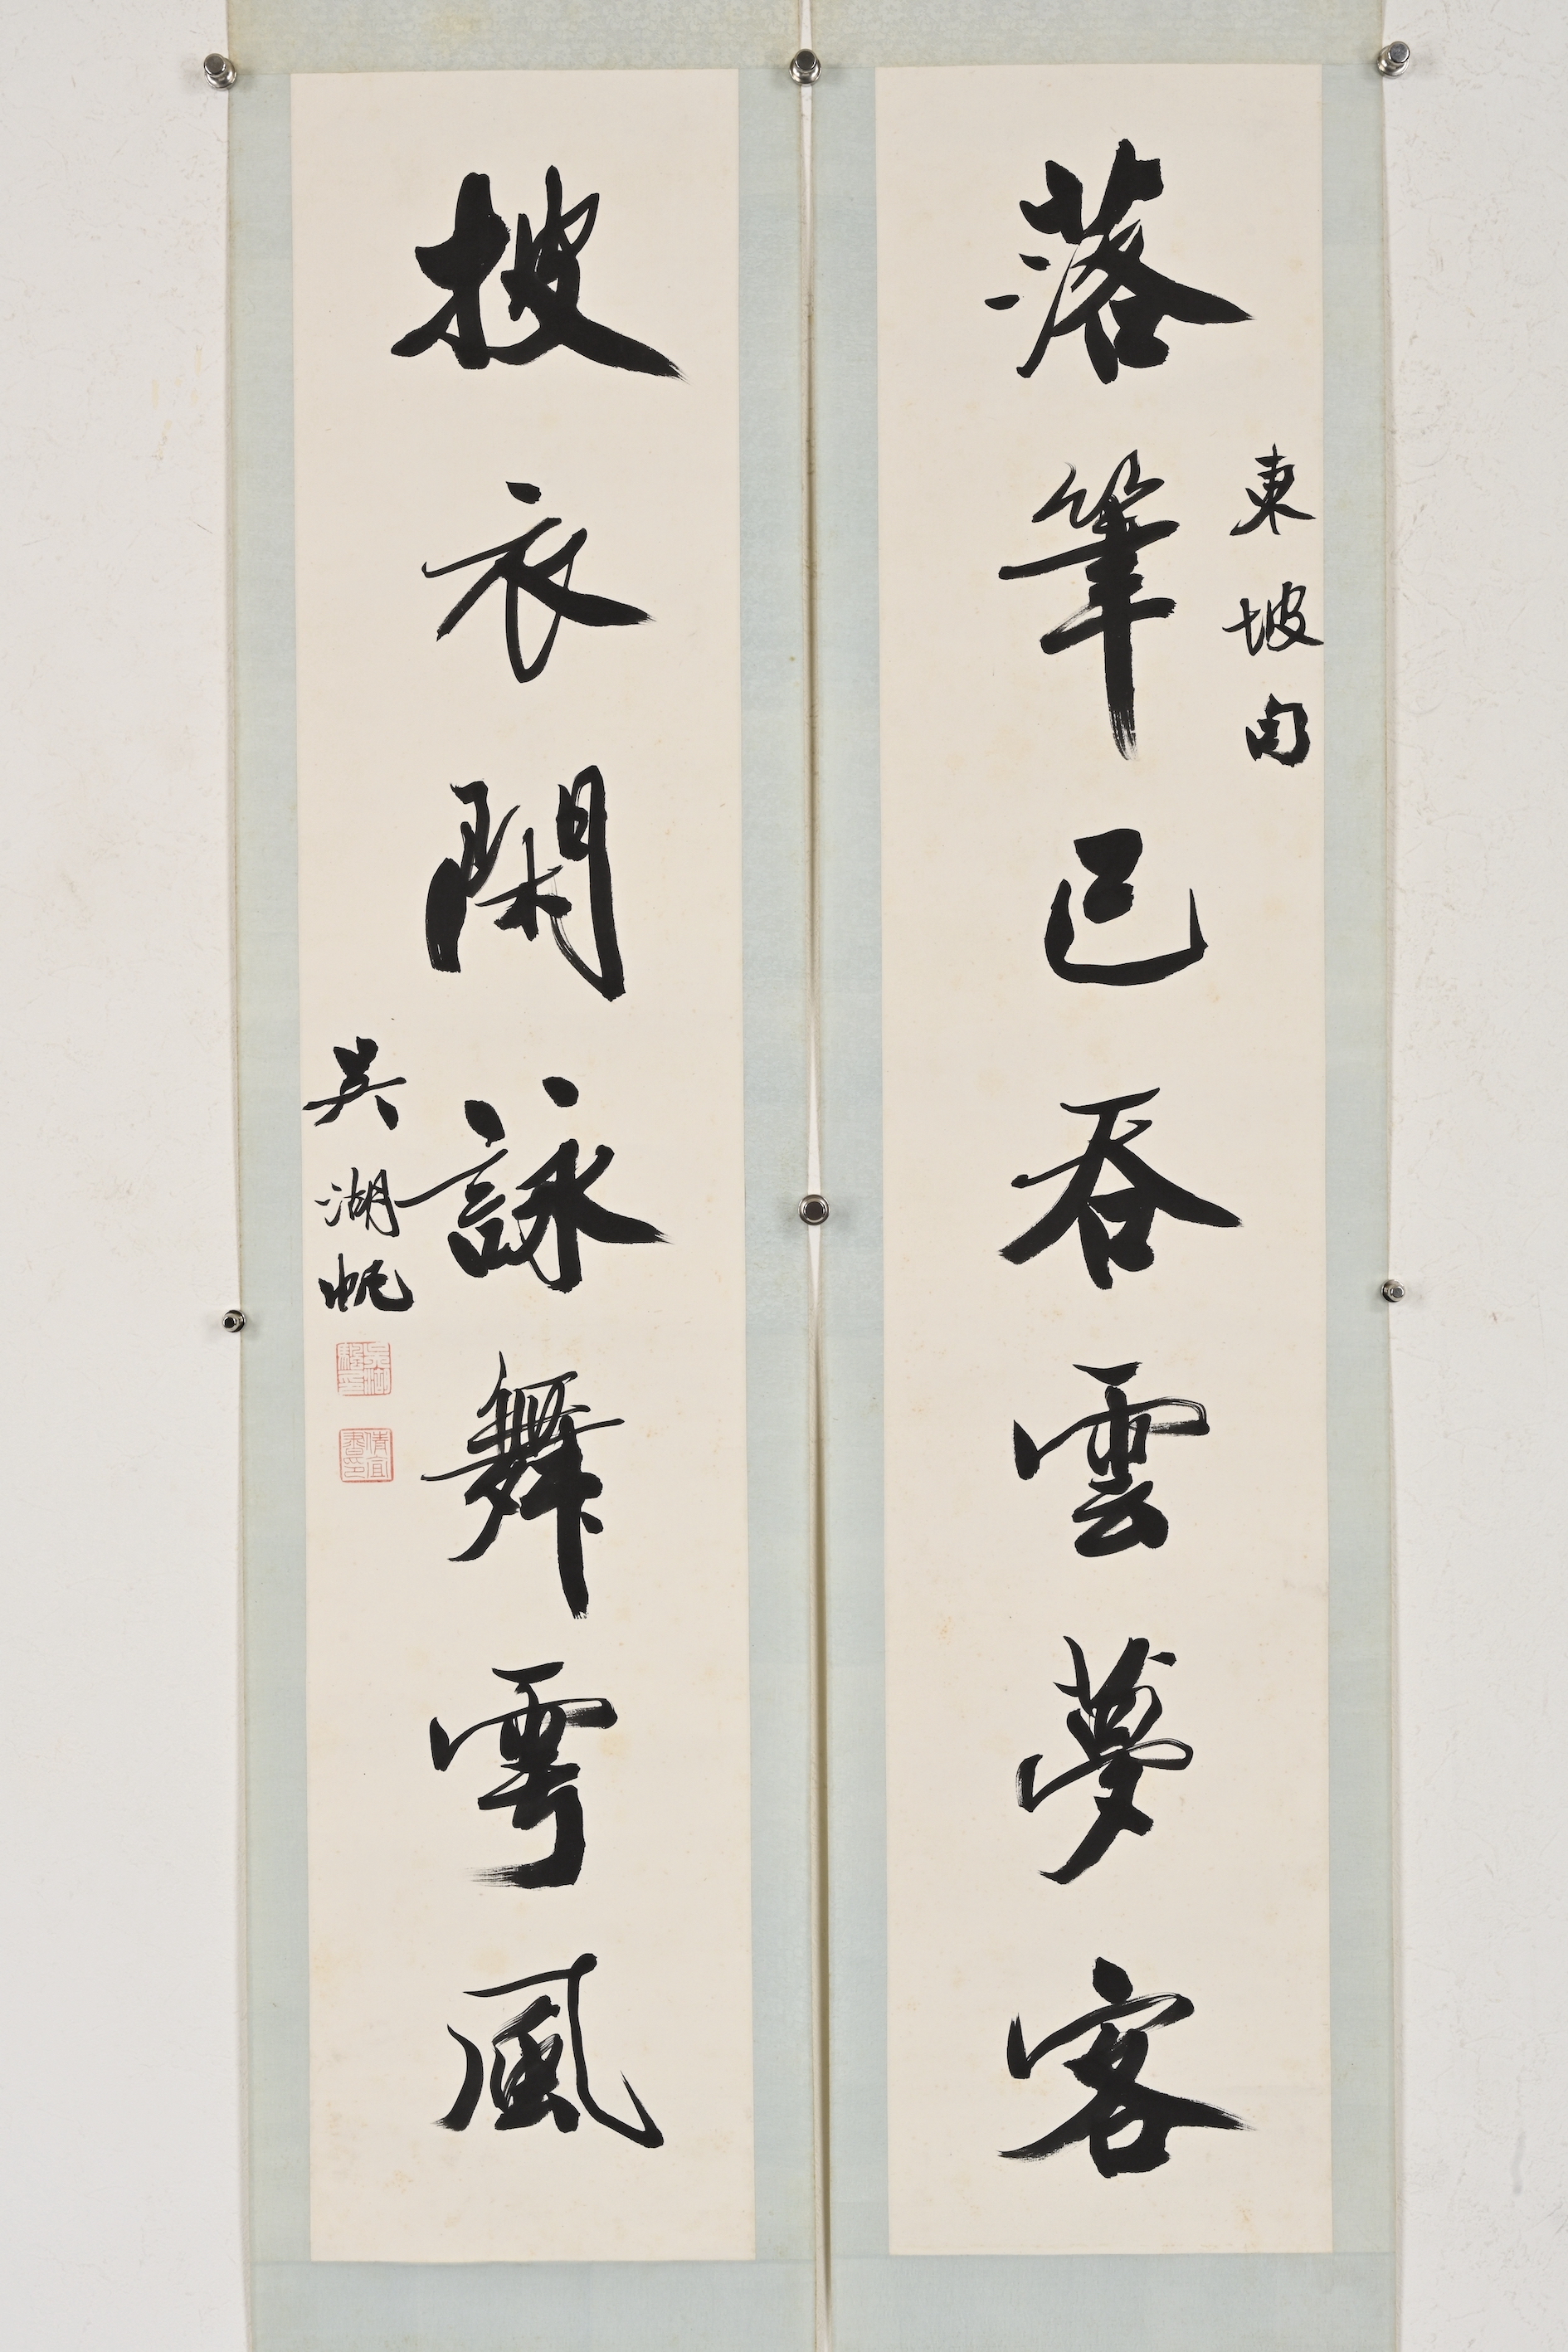 落筆已吞雲夢客
東坡句
披衣閑詠舞雩風
吳湖帆